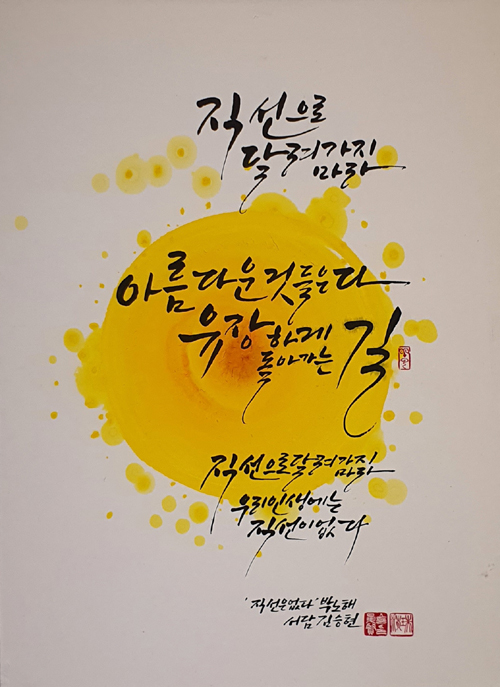 직선으로
달려가지
마라
아름다운것들은다
유장하게
돌아가는 길
직선으로달려가지
마라
우리인생에는
직선이없다
'직선은없다' 박노해
서담 김승현